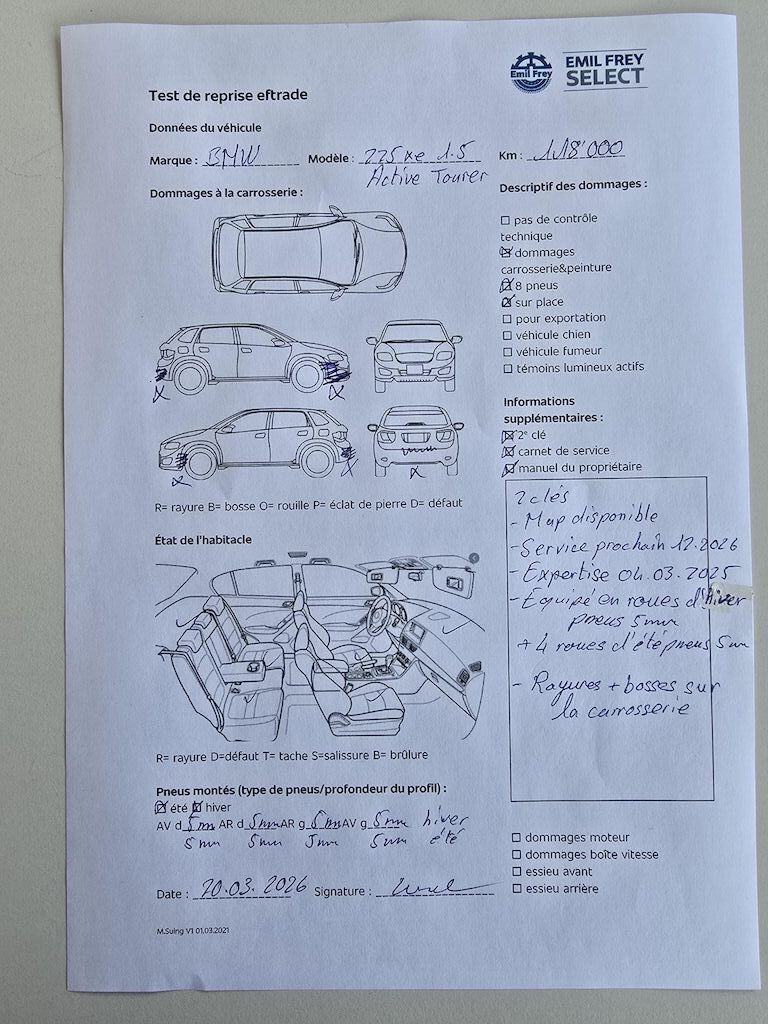 Emil Frey
EMIL FREY
SELECT
Test de reprise eftrade
Données du véhicule
Marque : BMW Modèle : 225 xe 1.5 Km : 118'000
Active Tourer
Dommages à la carrosserie :
Descriptif des dommages :
pas de contrôle
technique
dommages
carrosserie&peinture
8 pneus
sur place
pour exportation
véhicule chien
véhicule fumeur
témoins lumineux actifs
Informations
supplémentaires :
2e clé
carnet de service
manuel du propriétaire
R= rayure B= bosse O= rouille P= éclat de pierre D= défaut
État de l'habitacle
2 clés
- Map disponible
- Service prochain 12.2026
- Expertise 04.03.2025
- Equipé en roues d'hiver
pneus 5mm
+ 4 roues d'été pneus 5mm
- Rayures + bosses sur
la carrosserie
R= rayure D=défaut T= tache S=salissure B= brûlure
Pneus montés (type de pneus/profondeur du profil) :
été hiver
AV d 5mm AR d 5mm AR g 5mm AV g 5mm hiver
5mm 5mm 5mm 5mm été
dommages moteur
dommages boîte vitesse
essieu avant
essieu arrière
Date : 20.03.2026 Signature :
M.Suing V1 01.03.2021